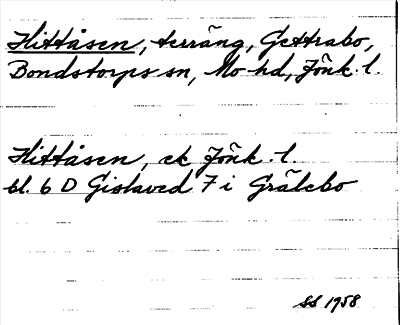 Hittåsen, terräng, Gettrabo,
Bondstorps sn, Mo hd, Jönk. l.
Hittåsen, ek Jönk. l.
bl. 6 D Gislaved 7 i Grälebo
SS 1958